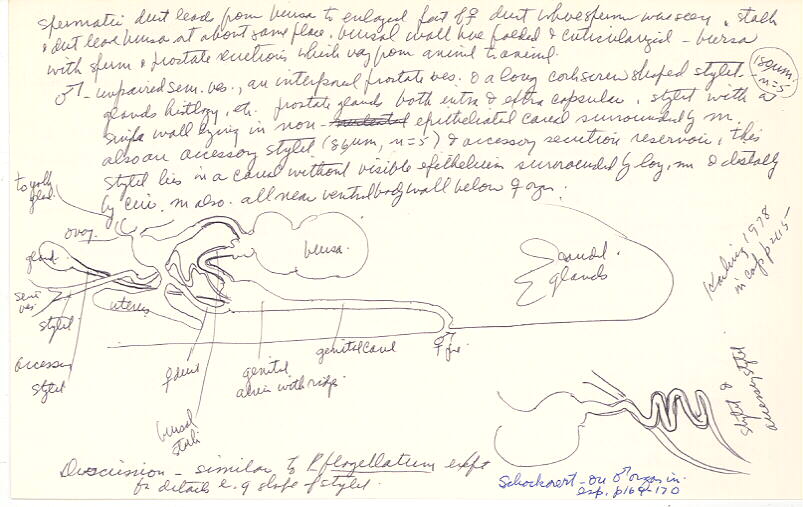 spermatic duct leads from bursa to enlarged part of ♀ duct where sperm was seen. stalk
& duct leave bursa at about same place. bursal wall has folded & cuticularized - bursa
with sperm & prostate secretions which vary from animal to animal.
♂ - unpaired sem. ves., an interposed prostate ves. & a long corkscrew shaped stylet
189µm, n=5
glands histology, etc. prostate glands both intra & extra capsular. stylet with a
single wall lying in non- epitheliated canal surrounded by m.
also an accessory stylet (86µm, n=5) & accessory secretion reservoir, this
stylet lies in a canal without visible epithelium surrounded by long. m & distally
by circ. m also. all near ventral body wall below ♀ orgs.
to yolk
gland
ovary
gland
sem
ves.
stylet
accessory
stylet
uterus
bursa.
caudal
glands
♀ duct
bursal
stalk
genital
with ridges
genital canal
♀♂ pore
Karling 1978
in cap p 215-
stylet &
accessory stylet
Discussion - similar to P. flagellatum except
for details e.g. shape of stylet.
Schockaert - on ♂ organs in.
esp. p 169-170